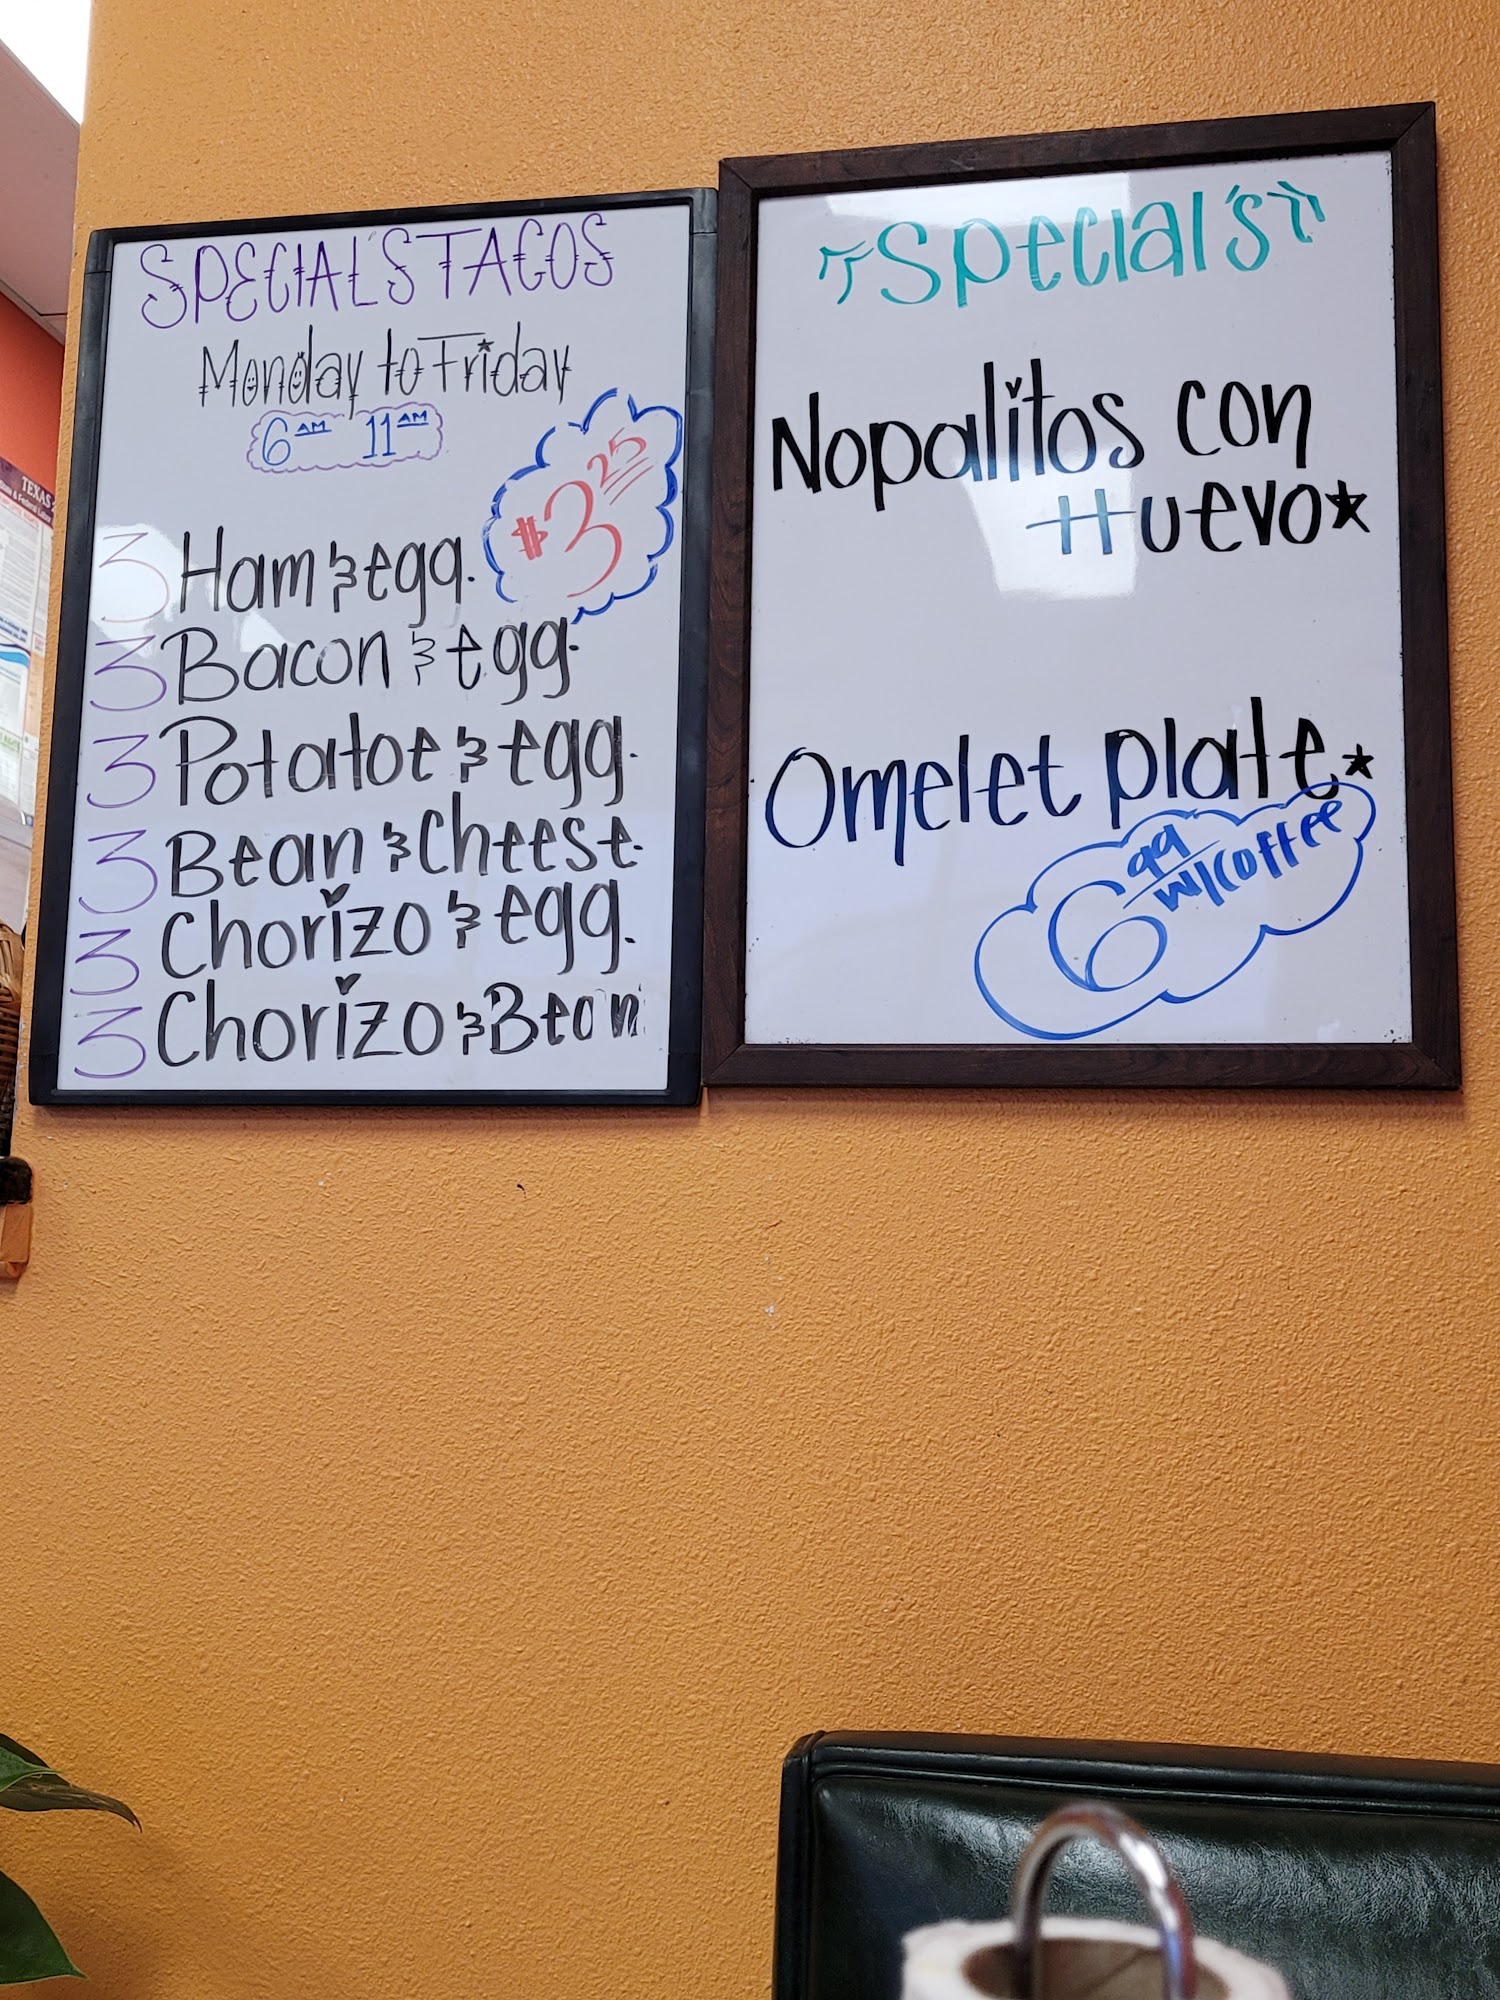 SPECIAL'S TACOS
Monday to Friday
6 AM 11 AM
$3 25
3 Ham & egg.
3 Bacon & egg.
3 Potatoe & egg.
3 Bean & Cheese.
3 Chorizo & egg.
3 Chorizo & Bean
Special's
Nopalitos con
Huevo
Omelet plate
6 99 w/coffee
TEXAS